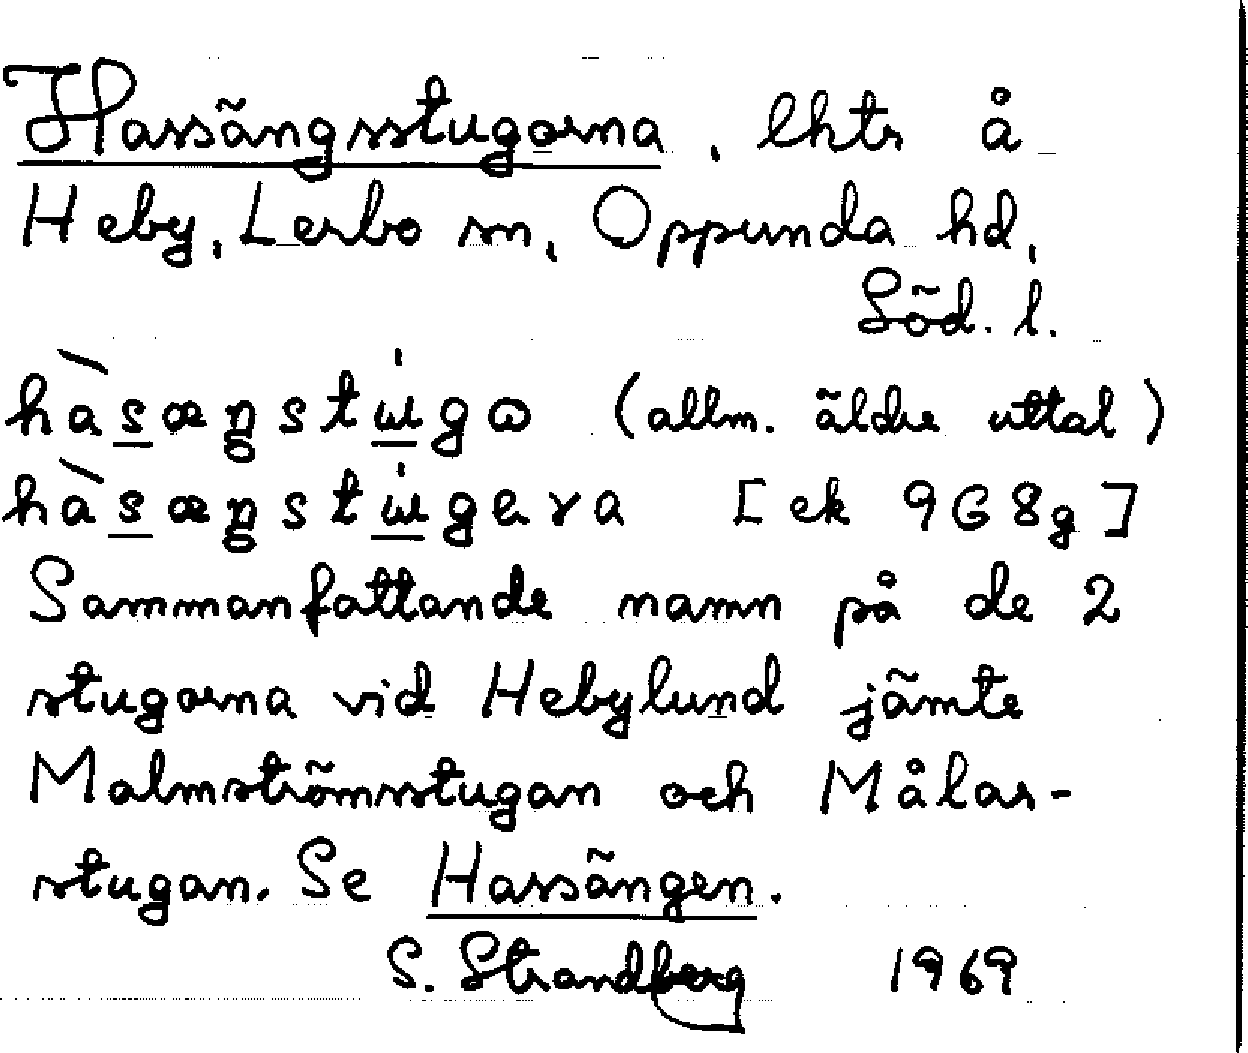 Hassängsstugorna, lhtr å
Heby, Lerbo sn, Oppunda hd,
Söd. l.
hàsæŋstẃgɷ (allm. äldre uttal)
hàsæŋstẃgɛra [ek 9G8g]
Sammanfattande namn på de 2
stugorna vid Hebylund jämte
Malmströmsstugan och Målar-
stugan. Se Hassängen.
S. Strandberg 1969